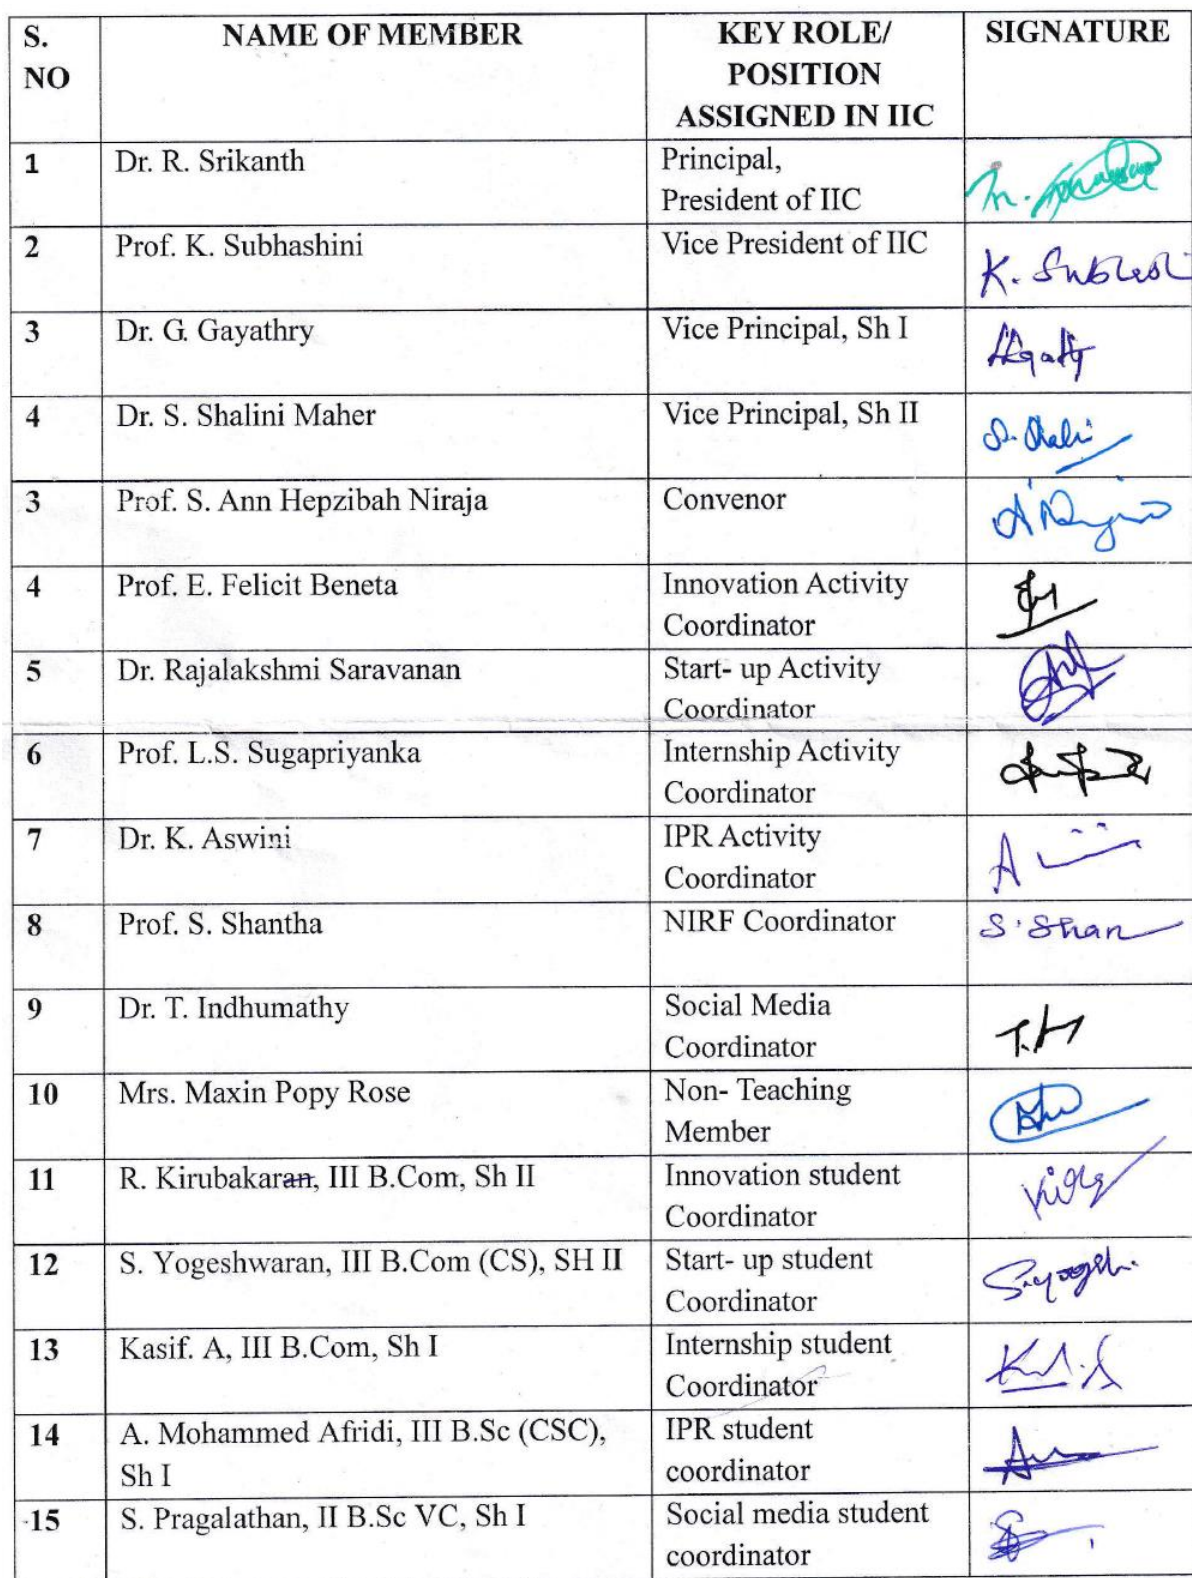 S. NO NAME OF MEMBER KEY ROLE/ POSITION ASSIGNED IN IIC SIGNATURE
1 Dr. R. Srikanth Principal,
President of IIC
2 Prof. K. Subhashini Vice President of IIC
3 Dr. G. Gayathry Vice Principal, Sh I
4 Dr. S. Shalini Maher Vice Principal, Sh II
3 Prof. S. Ann Hepzibah Niraja Convenor
4 Prof. E. Felicit Beneta Innovation Activity
Coordinator
5 Dr. Rajalakshmi Saravanan Start- up Activity
Coordinator
6 Prof. L.S. Sugapriyanka Internship Activity
Coordinator
7 Dr. K. Aswini IPR Activity
Coordinator
8 Prof. S. Shantha NIRF Coordinator S. Shan
9 Dr. T. Indhumathy Social Media
Coordinator
10 Mrs. Maxin Popy Rose Non- Teaching
Member
11 R. Kirubakaran, III B.Com, Sh II Innovation student
Coordinator
12 S. Yogeshwaran, III B.Com (CS), SH II Start- up student
Coordinator
13 Kasif. A, III B.Com, Sh I Internship student
Coordinator
14 A. Mohammed Afridi, III B.Sc (CSC), IPR student
Sh I coordinator
15 S. Pragalathan, II B.Sc VC, Sh I Social media student
coordinator